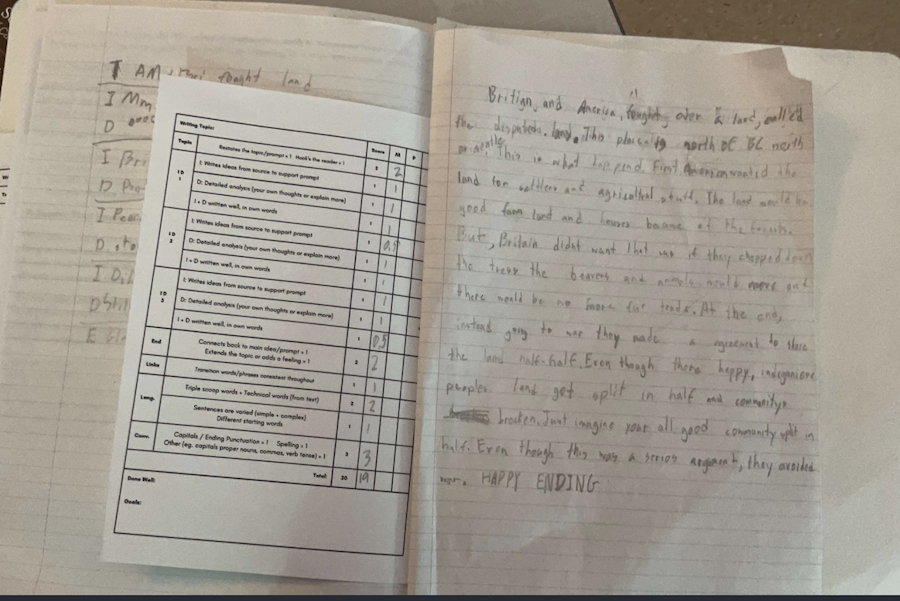 T AM fought land
I Mm
D
I Bri
D Pro
I Peac
D
I Di
D Shi
E
Writing Topic:
Topic Restates the topic/prompt + 1 Hook's the reader + 1 Score At P
2 2
ID 1 I: Writes ideas from source to support prompt 1 1
D: Detailed analysis (your own thoughts or explain more) 1 1
I + D written well, in own words 1 1
ID 2 I: Writes ideas from source to support prompt 1 0.5
D: Detailed analysis (your own thoughts or explain more) 1 1
I + D written well, in own words 1 1
ID 3 I: Writes ideas from source to support prompt 1 1
D: Detailed analysis (your own thoughts or explain more) 1 1
I + D written well, in own words 1 0.5
End Connects back to main idea/prompt + 1
Extends the topic or adds a feeling + 1 2 2
Links Transition words/phrases consistent throughout 1 1
Lang. Triple scoop words + Technical words (from text) 2 2
Sentences are varied (simple + complex)
Different starting words 1 1
Conv. Capitals / Ending Punctuation + 1 Spelling + 1
Other (eg. capitals proper nouns, commas, verb tense) + 1 3 3
Total: 20 19
Done Well:
Goals:
Britian, and America, fought, over a land, called
the disputed land. This place is north of BC north
This is what happend. First American wanted the
land for settlers and agricultral stuff. The land would be
good farm land and houses because of the forests.
But, Britain didnt want that cus if they chopped down
the trees the beavers and animals would move and
there would be no more fur trade. At the end,
instead going to war they made a agreement to share
the land half-half. Even though there happy, indegeniere
peoples land got split in half and communitys
broken. Just imagine your all good community split in
half. Even though this was a serios argument, they avoided
war. HAPPY ENDING